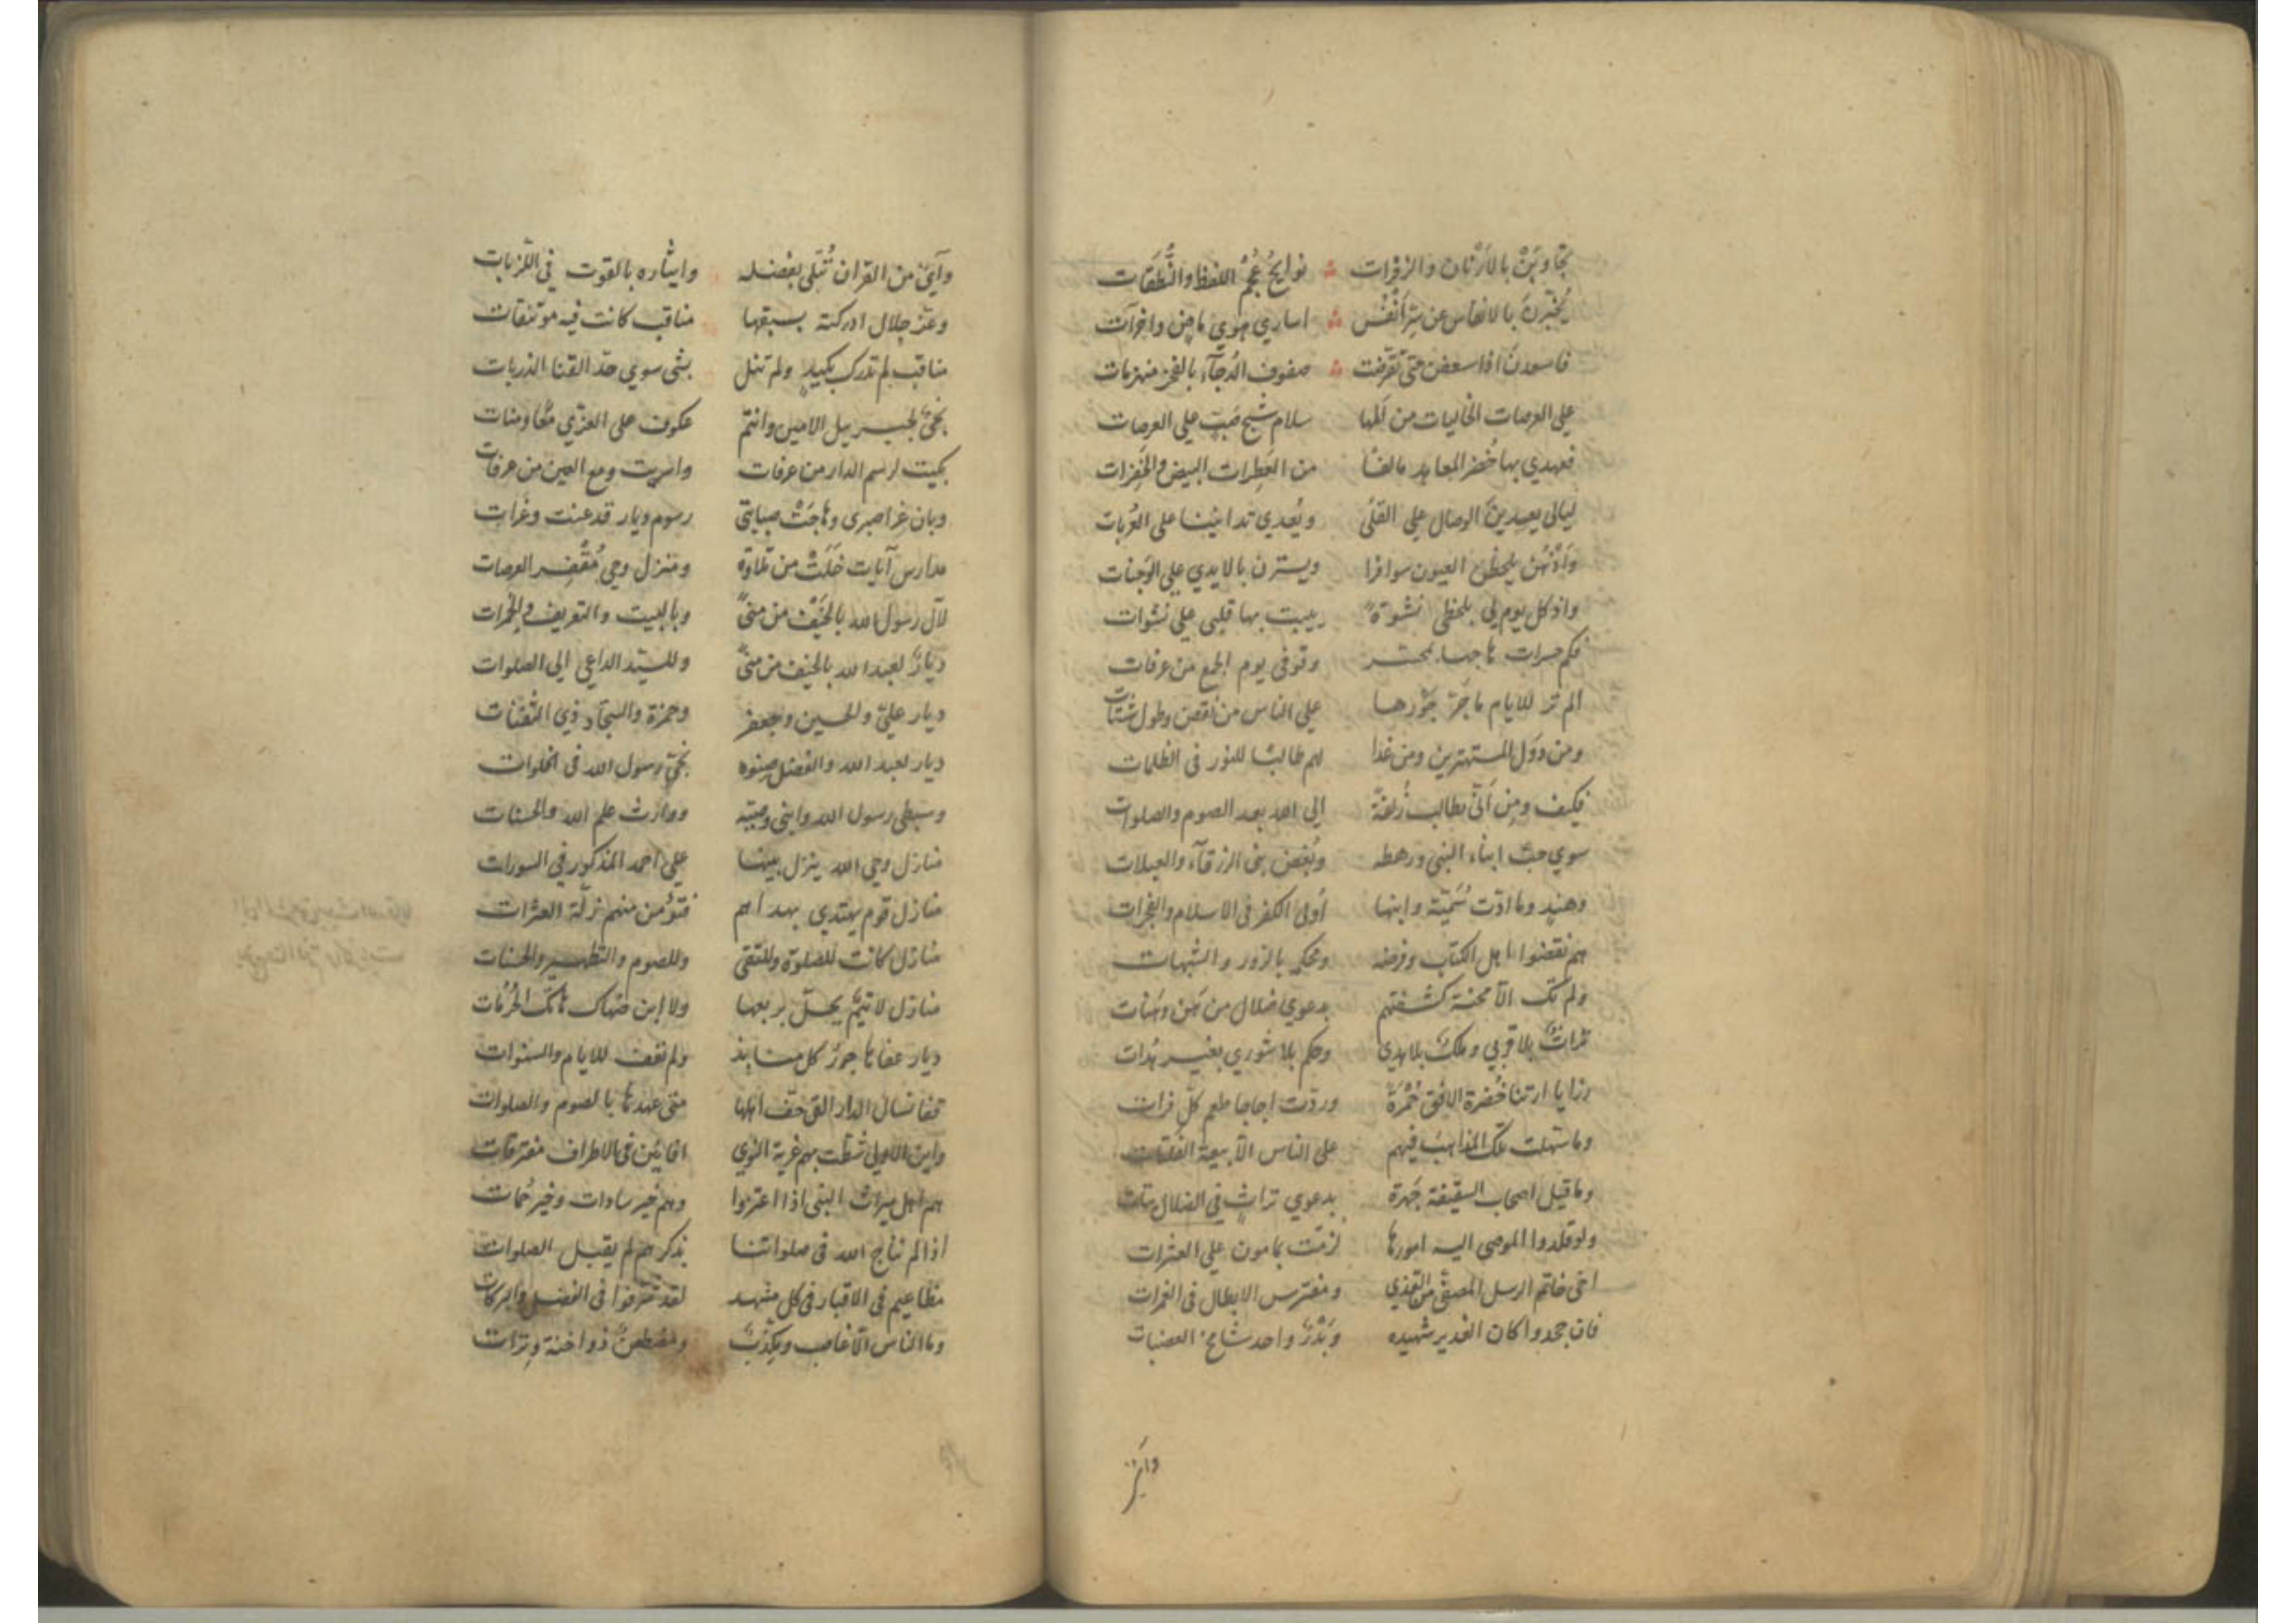 تجاوبن بالارنان والزفرات نوايح عجم اللفظ والنطقات
يخبرن بالانفاس عن سر انفس اساري هوي ماض وآخرآت
فاسعدن او اسعفن حتى تقوضت صفوف الدجآء بالفجر منهزمات
علي العرصات الخاليات من المها سلام شج صب علي العرصات
فعهدي بها خضر المعاهد مالفا من العطرات البيض والخفرات
ليالي يعدين الوصال علي القلى ويعدي تدانيننا على العزبات
واذ هن يلحظن العيون سوافرا ويسترن بالايدي علي الوجنات
واذ كل يوم لي بلحظي نشوة يبيت بها قلبي علي نشوات
فكم حسرات هاجها بمحسر وقوفي يوم الجمع من عرفات
الم تر للايام ما جر جورها علي الناس من نقص وطول شتات
ومن دول المستهترين ومن غدا بهم طالبا للنور في الظلمات
فكيف ومن انى بطالب زلفة الي الله بعد الصوم والصلوات
سوي حب ابناء النبي ورهطه وبغض بني الزرقآء والعبلات
وهند وما ادت سمية وابنها اولي الكفر في الاسلام والفجرات
هم نقضوا اهل الكتاب وفرضه ومحكمه بالزور والشبهات
ولم تك الا محنة كشفتهم بدعوي ضلال من هن وهنات
تراث بلا قربي وملك بلا هدي وحكم بلا شوري بغير هدات
رزايا ارتنا خضرة الافق حمرة وردت اجاجا طعم كل فرات
وما سهلت تلك المذاهب فيهم علي الناس الا بيعة الفلتات
وما قيل اصحاب السقيفة جهرة بدعوي تراث في الضلال بتات
ولو قلدوا الموصي اليه امورها لزمت بمامون علي العثرات
اخي خاتم الرسل المصفي من القذي ومفترس الابطال في الغمرات
فان جحدوا كان الغدير شهيده وبدر واحد شامخ الهضبات
وآي من
وآي من القران تتلي بفضله وايثاره بالقوت في اللزبات
وعز جلال ادركته بسبقها مناقب كانت فيه موتنفات
مناقب لم تدرك بكيد ولم تنل بشي سوي حد القنا الذربات
نجي لجبريل الامين وانتم عكوف علي العزي معا ومنات
بكيت لرسم الدار من عرفات واسريت دمع العين من عرفات
وبان عرا صبري وهاجت صبابتي رسوم ديار قد عفت وغرات
مدارس آيات خلت من تلاوة ومنزل وحي مقفر العرصات
لآل رسول الله بالخيف من منى وبالبيت والتعريف والجمرات
ديار لعبد الله بالخيف من منى وللسيد الداعي الي الصلوات
ديار علي والحسين وجعفر وحمزة والسجاد ذي الثفنات
ديار لعبد الله والفضل صنوه نجي رسول الله في الخلوات
وسبطي رسول الله وابني وصيه ووارث علم الله والحسنات
منازل وحي الله ينزل بينها علي احمد المذكور في السورات
منازل قوم يهتدي بهداهم فتؤمن منهم زلة العثرات
منازل كانت للصلوة وللتقي وللصوم والتطهير والحسنات
منازل لا تيم يحل بربعها ولا ابن ضهاك هاتك الحرمات
ديار عفاها جور كل منابذ ولم تعف للايام والسنوات
قفا نسال الدار التي خف اهلها متي عهدها بالصوم والصلوات
واين الاولي شطت بهم غربة النوي افانين في الاطراف مفترقات
هم اهل ميراث النبي اذا اعتزوا وهم خير سادات وخير حمات
اذا لم نناج الله في صلواتنا بذكرهم لم يقبل الصلوات
مطاعيم في الاقتار في كل مشهد لقد شرفوا في الفضل والبركات
وما الناس الا غاصب ومكذب ومضطغن ذو احنة وترات